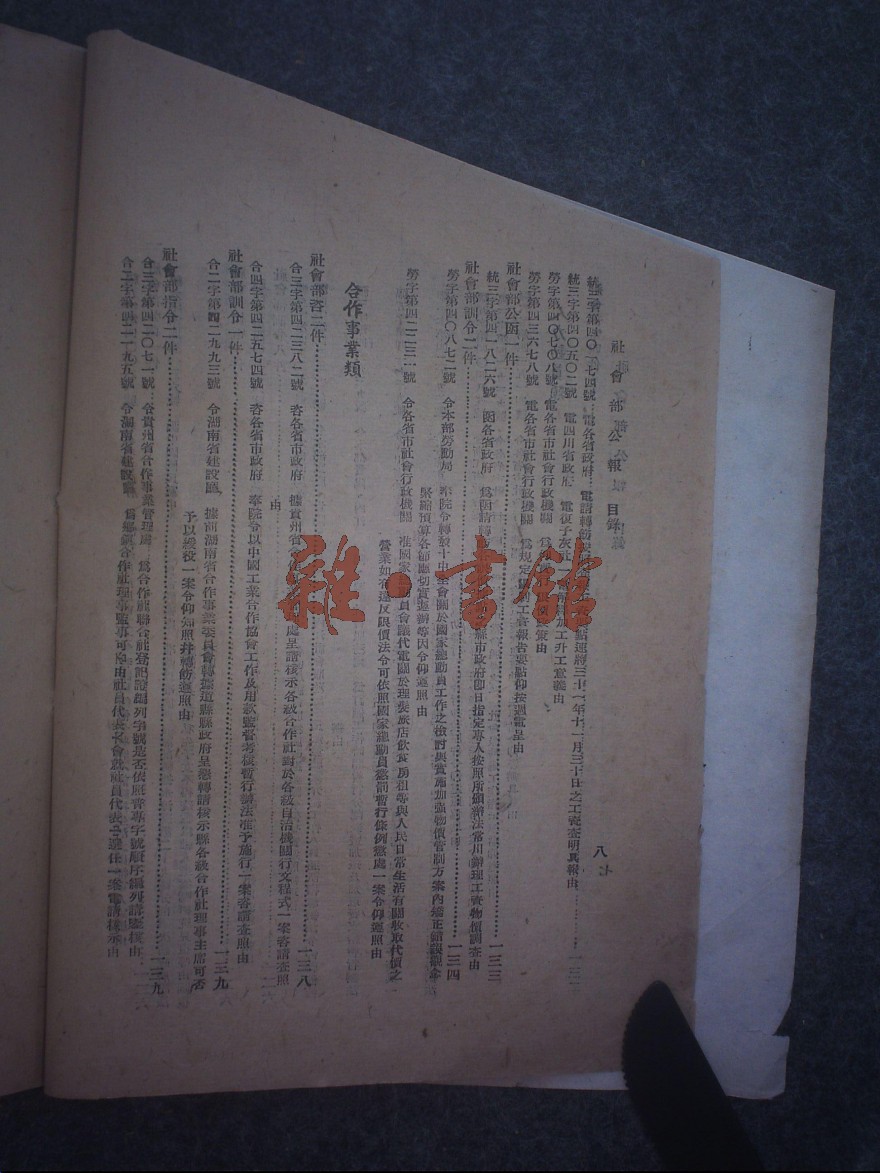 社會部公報 目錄
八
統三字第四〇 七四號 電各省政府 電請轉飭 三十一年十一月三十日之工資查明具報由
統三字第四〇五〇二號 電四川省政府 電復子灰社 加工升工意義由
勞字第四〇七〇八號 電各省市社會行政機關 為 由
勞字第四三六七八號 電各省市社會行政機關 為規定 工作報告要點仰按週電呈由
社會部公函一件 一三三
統三字第四一八二六號 函各省政府 為函請轉 縣市政府卽日指定專人按照所頒辦法常川辦理工資物價調查由
社會部訓令二件 一三四
勞字第四〇八七二號 令本部勞動局 奉院令轉發十中全會關於國家總動員工作之檢討與實施加強物價管制方案內矯正錯誤觀念
緊縮預算各節應切實遵辦等因令仰遵照由
勞字第四二二三一號 令各省市社會行政機關 准國家 動員會議代電關於理髮旅店飲食房租等與人民日常生活有關收取代價之
營業如有違反限價法令可依照國家總動員懲罰暫行條例懲處一案令仰遵照由
合作事業類
社會部咨二件 一三八
合三字第四二三八二號 咨各省市政府 據貴州省合作 處呈請核示各級合作社對於各級自治機關行文程式一案咨請查照
由
合四字第四二五七四號 咨各省市政府 奉院令以中國工業合作協會工作及用款監督考核暫行辦法准予施行一案咨請查照由
社會部訓令一件 一三九
合二字第四二九九三號 令湖南省建設廳 據前湖南省合作事業委員會轉據道縣縣政府呈懇轉請核示縣各級合作社理事主席可否
予以緩役一案令仰知照并轉飭遵照由
社會部指令二件 一三九
合三字第四二〇七一號 令貴州省合作事業管理處 為合作社聯合社登記證編列字號是否依照普專字號順序編列請鑒核由
合二字第四二一九五號 令湖南省建設廳 為鄉鎮合作社理事監事可否由社員代表大會就社員代表中選任一案電請核示由
雜·書館